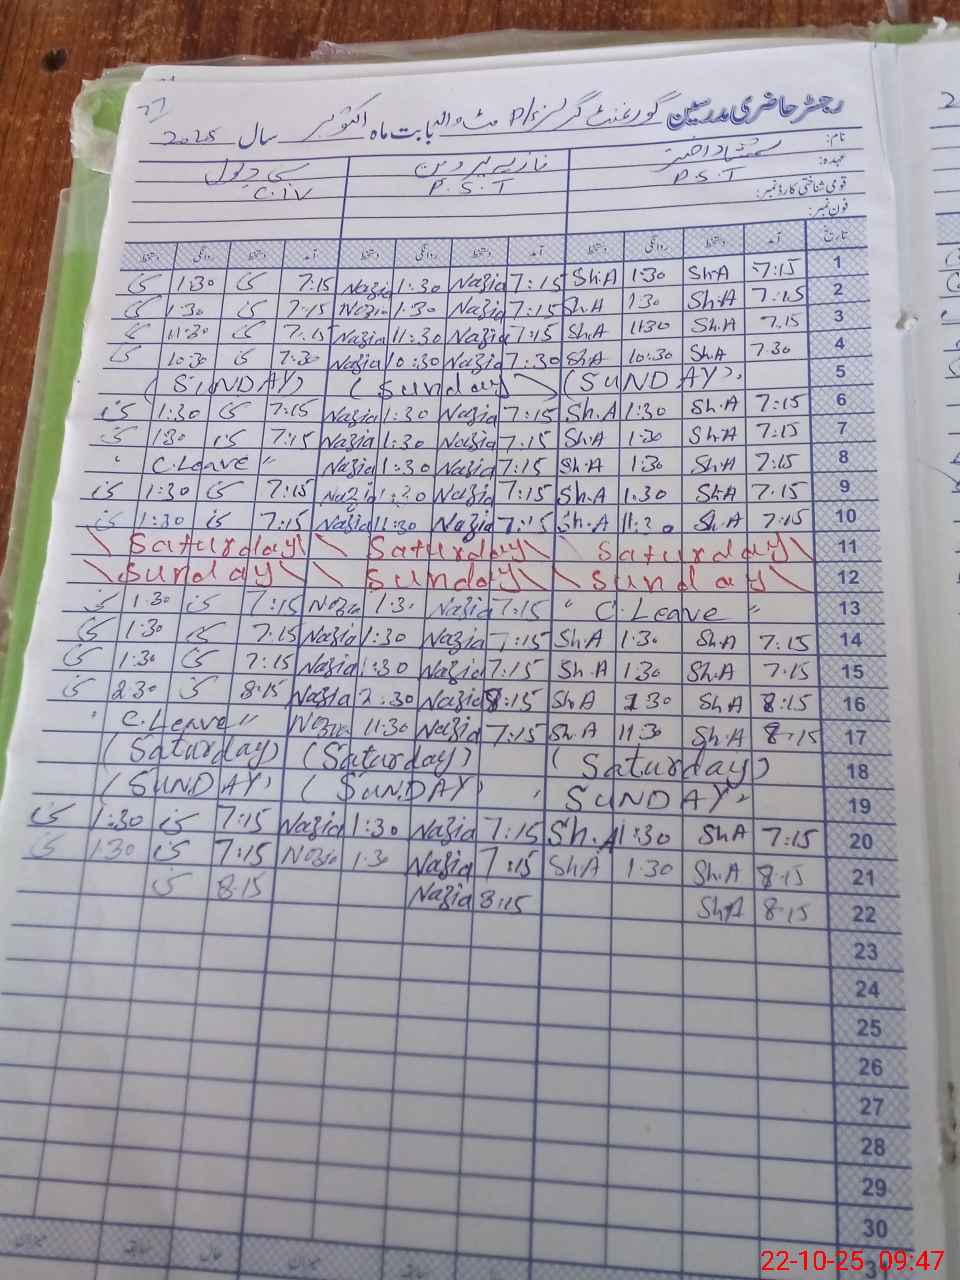 رجسٹر حاضری مدرسین گورنمنٹ گرلز P/S مٹ والہ بابت ماہ اکتوبر سال 2025
نام: شمشاد اختر نازیہ پروین سی ویول
عہدہ: P.S.T P.S.T C.iv
قومی شناختی کارڈ نمبر:
فون نمبر:
تاریخ آمد دستخط روانگی دستخط آمد دستخط روانگی دستخط آمد دستخط روانگی دستخط
1 7:15 Sh.A 1:30 Sh.A 7:15 Nazia 1:30 Nazia 7:15 1:30
2 7:15 Sh.A 1:30 Sh.A 7:15 Nazia 1:30 Nazia 7:15 1:30
3 7.15 Sh.A 11:30 Sh.A 7:15 Nazia 11:30 Nazia 7.15 11:30
4 7.30 Sh.A 10:30 Sh.A 7:30 Nazia 10:30 Nazia 7:30 10:30
5 (SUNDAY) (Sunday) (SUNDAY)
6 7:15 Sh.A 1:30 Sh.A 7:15 Nazia 1:30 Nazia 7:15 1:30
7 7:15 Sh.A 1:30 Sh.A 7:15 Nazia 1:30 Nazia 7:15 1:30
8 7:15 Sh.A 1:30 Sh.A 7:15 Nazia 1:30 Nazia " C.Leave "
9 7:15 Sh.A 1:30 Sh.A 7:15 Nazia 1:30 Nazia 7:15 1:30
10 7:15 Sh.A 11:30 Sh.A 7:15 Nazia 11:30 Nazia 7:15 1:30
11 \ Saturday \ \ Saturday \ \ Saturday \
12 \ Sunday \ \ Sunday \ \ Sunday \
13 " C.Leave " 7:15 Nazia 1:3 Nazia 7:15 1:30
14 7:15 Sh.A 1:30 Sh.A 7:15 Nazia 1:30 Nazia 7:15 1:30
15 7:15 Sh.A 1:30 Sh.A 7:15 Nazia 1:30 Nazia 7:15 1:30
16 8:15 Sh.A 2:30 Sh.A 8:15 Nazia 2:30 Nazia 8:15 2:30
17 8:15 Sh.A 11:30 Sh.A 7:15 Nazia 11:30 Nazia " C.Leave "
18 (Saturday) (Saturday) (Saturday)
19 SUNDAY (SUNDAY) (SUNDAY)
20 7:15 Sh.A 1:30 Sh.A 7:15 Nazia 1:30 Nazia 7:15 1:30
21 8:15 Sh.A 1:30 Sh.A 7:15 Nazia 1:30 Nazia 7:15 1:30
22 8:15 Sh.A 8:15 Nazia 8:15
23
24
25
26
27
28
29
30
22-10-25 09:47